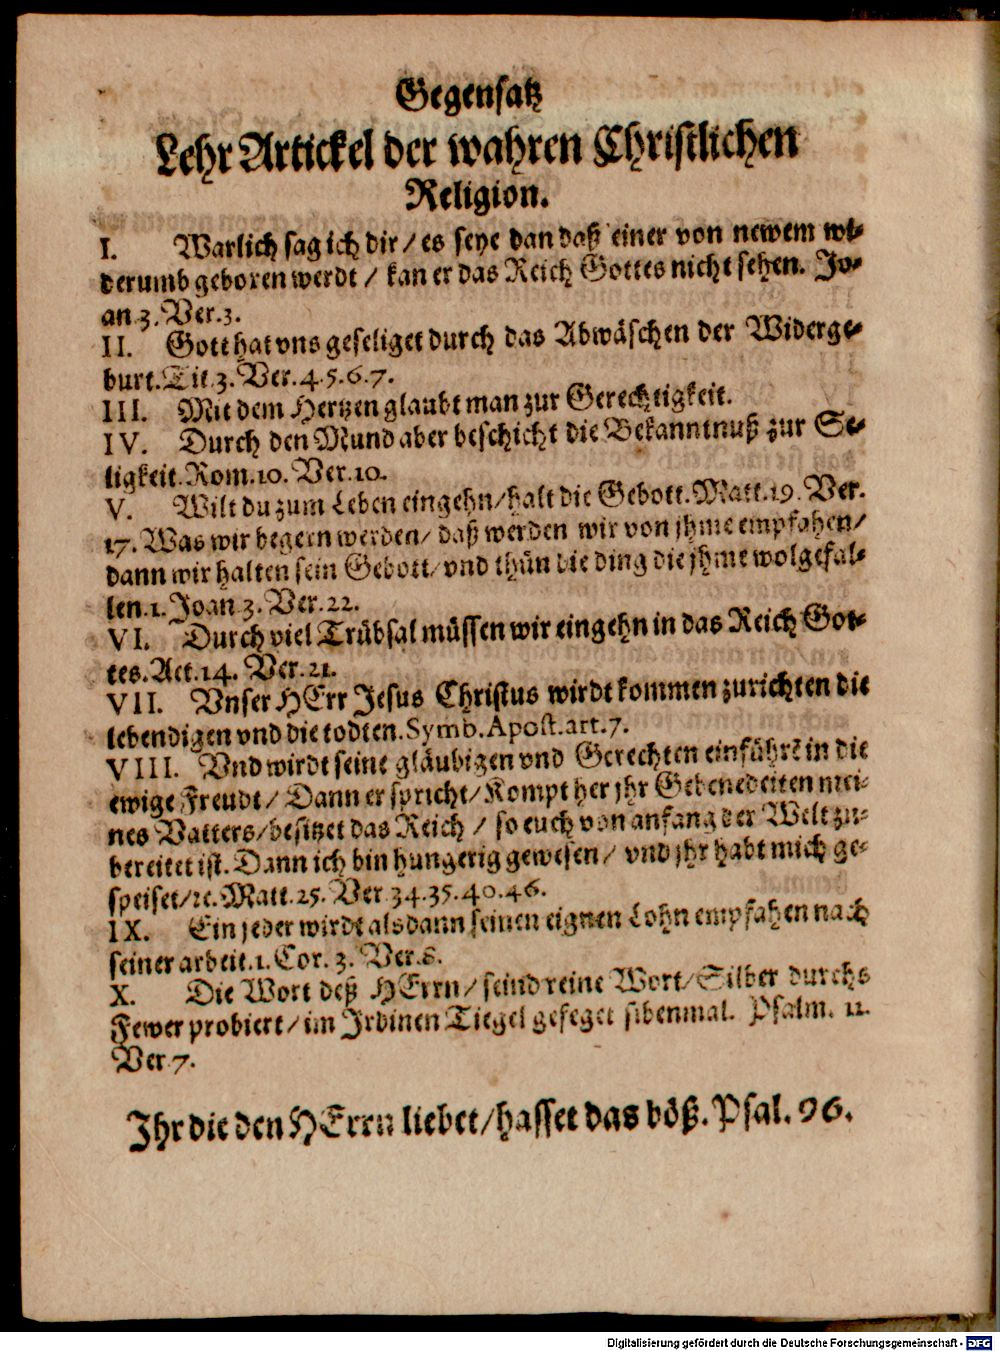 Gegensatz
Lehr Artickel der wahren Christlichen
Religion.
I. Warlich sag ich dir / es seye dan daß einer von newem wi-
derumb geboren werdt / kan er das Reich Gottes nicht sehen. Jo-
an 3. Ver. 3.
II. Gott hat vns geseliget durch das Abwäschen der Widerge-
burt. Tit. 3. Ver. 4. 5. 6. 7.
III. Mit dem Hertzen glaubt man zur Gerechtigkeit.
IV. Durch den Mund aber beschicht die Bekanntnuß zur Se-
ligkeit. Rom. 10. Ver. 10.
V. Wilt du zum Leben eingehn / halt die Gebott. Matt. 19. Ver.
17. Was wir begern werden / daß werden wir von jhme empfahen /
dann wir halten sein Gebott / vnd thůn die ding die jhme wolgefal-
len. 1. Joan 3. Ver. 22.
VI. Durch viel Trübsal müssen wir eingehn in das Reich Got-
tes. Act. 14. Ver. 21.
VII. Vnser HErr Jesus Christus wirdt kommen zurichten die
lebendigen vnd die todten. Symb. Apost. art. 7.
VIII. Vnd wirdt seine gläubigen vnd Gerechten einführē in die
ewige Freudt / Dann er spricht / Kompt her jhr Gebenedeiten mei-
nes Vatters / besitzet das Reich / so euch von anfang der Welt zu-
bereitet ist. Dann ich bin hungerig gewesen / vnd jhr habt mich ge-
speiset / ꝛc. Matt. 25. Ver 34. 35. 40. 46.
IX. Ein jeder wirdt alsdann seinen eignen Lohn empfahen nach
seiner arbeit. 1. Cor. 3. Ver. 8.
X. Die Wort deß HErrn / seind reine Wort / Silber durchs
Fewer probiert / im Jrdinen Tiegel gefeget sibenmal. Psalm. 11.
Ver 7.
Jhr die den HErrn liebet / hasset das böß. Psal. 96.
Digitalisierung gefördert durch die Deutsche Forschungsgemeinschaft - DFG